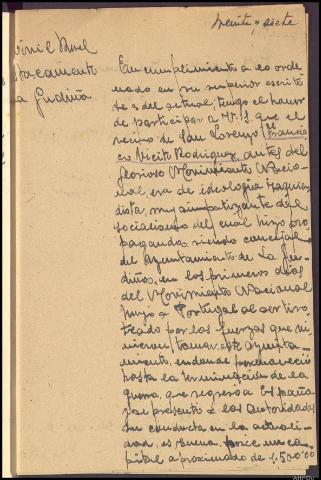 treinta y siete
Civil Rural
Destacamento
La Gudiña
En cumplimiento a lo orde
nado en su superior escrito
de 3 del actual, tengo el honor
de participar a V.S. que el
vecino de San Lorenzo, Francis
co Vicito Rodriguez, antes del
glorioso Movimiento Nacio
nal era de ideologia izquier
dista, muy simpatizante del
socialismo del cual hizo pro
paganda, siendo concejal
del Ayuntamiento de La Gu
diña, en los primeros dias
del Movimiento Nacional
huyó a Portugal al ser tiro
teado por las fuerzas que vi
nieron tomar este Ayunta
miento, en donde permaneció
hasta la terminación de la
guerra, que regresó a España
y se presentó a las autoridades
su conducta en la actuali
dad, es buena, posee un ca
pital aproximado de 1.500'00